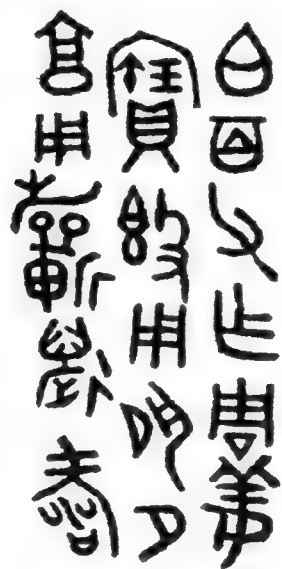 白百父乍周姜
寶𣪘用夙夕
亯用𣄨萬壽